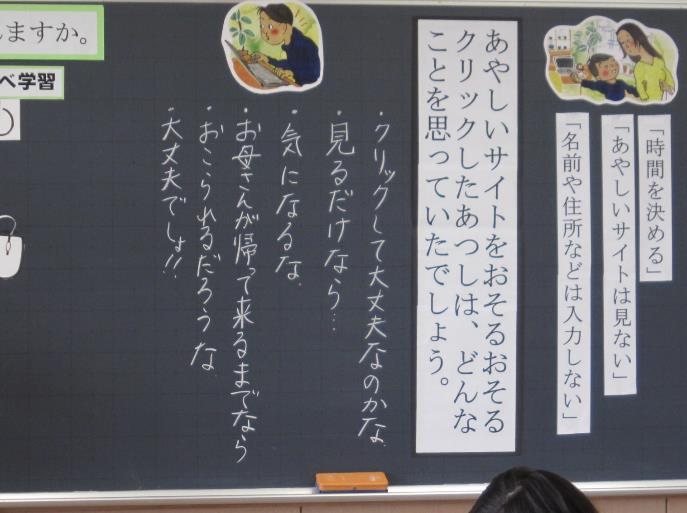 「時間を決める」
「あやしいサイトは見ない」
「名前や住所などは入力しない」
あやしいサイトをおそるおそる
クリックしたあつしは、どんな
ことを思っていたでしょう。
・クリックして大丈夫なのかな
・見るだけなら…
・気になるな
・お母さんが帰って来るまでなら
・おこられるだろうな
・大丈夫でしょ!!
ますか。
べ学習